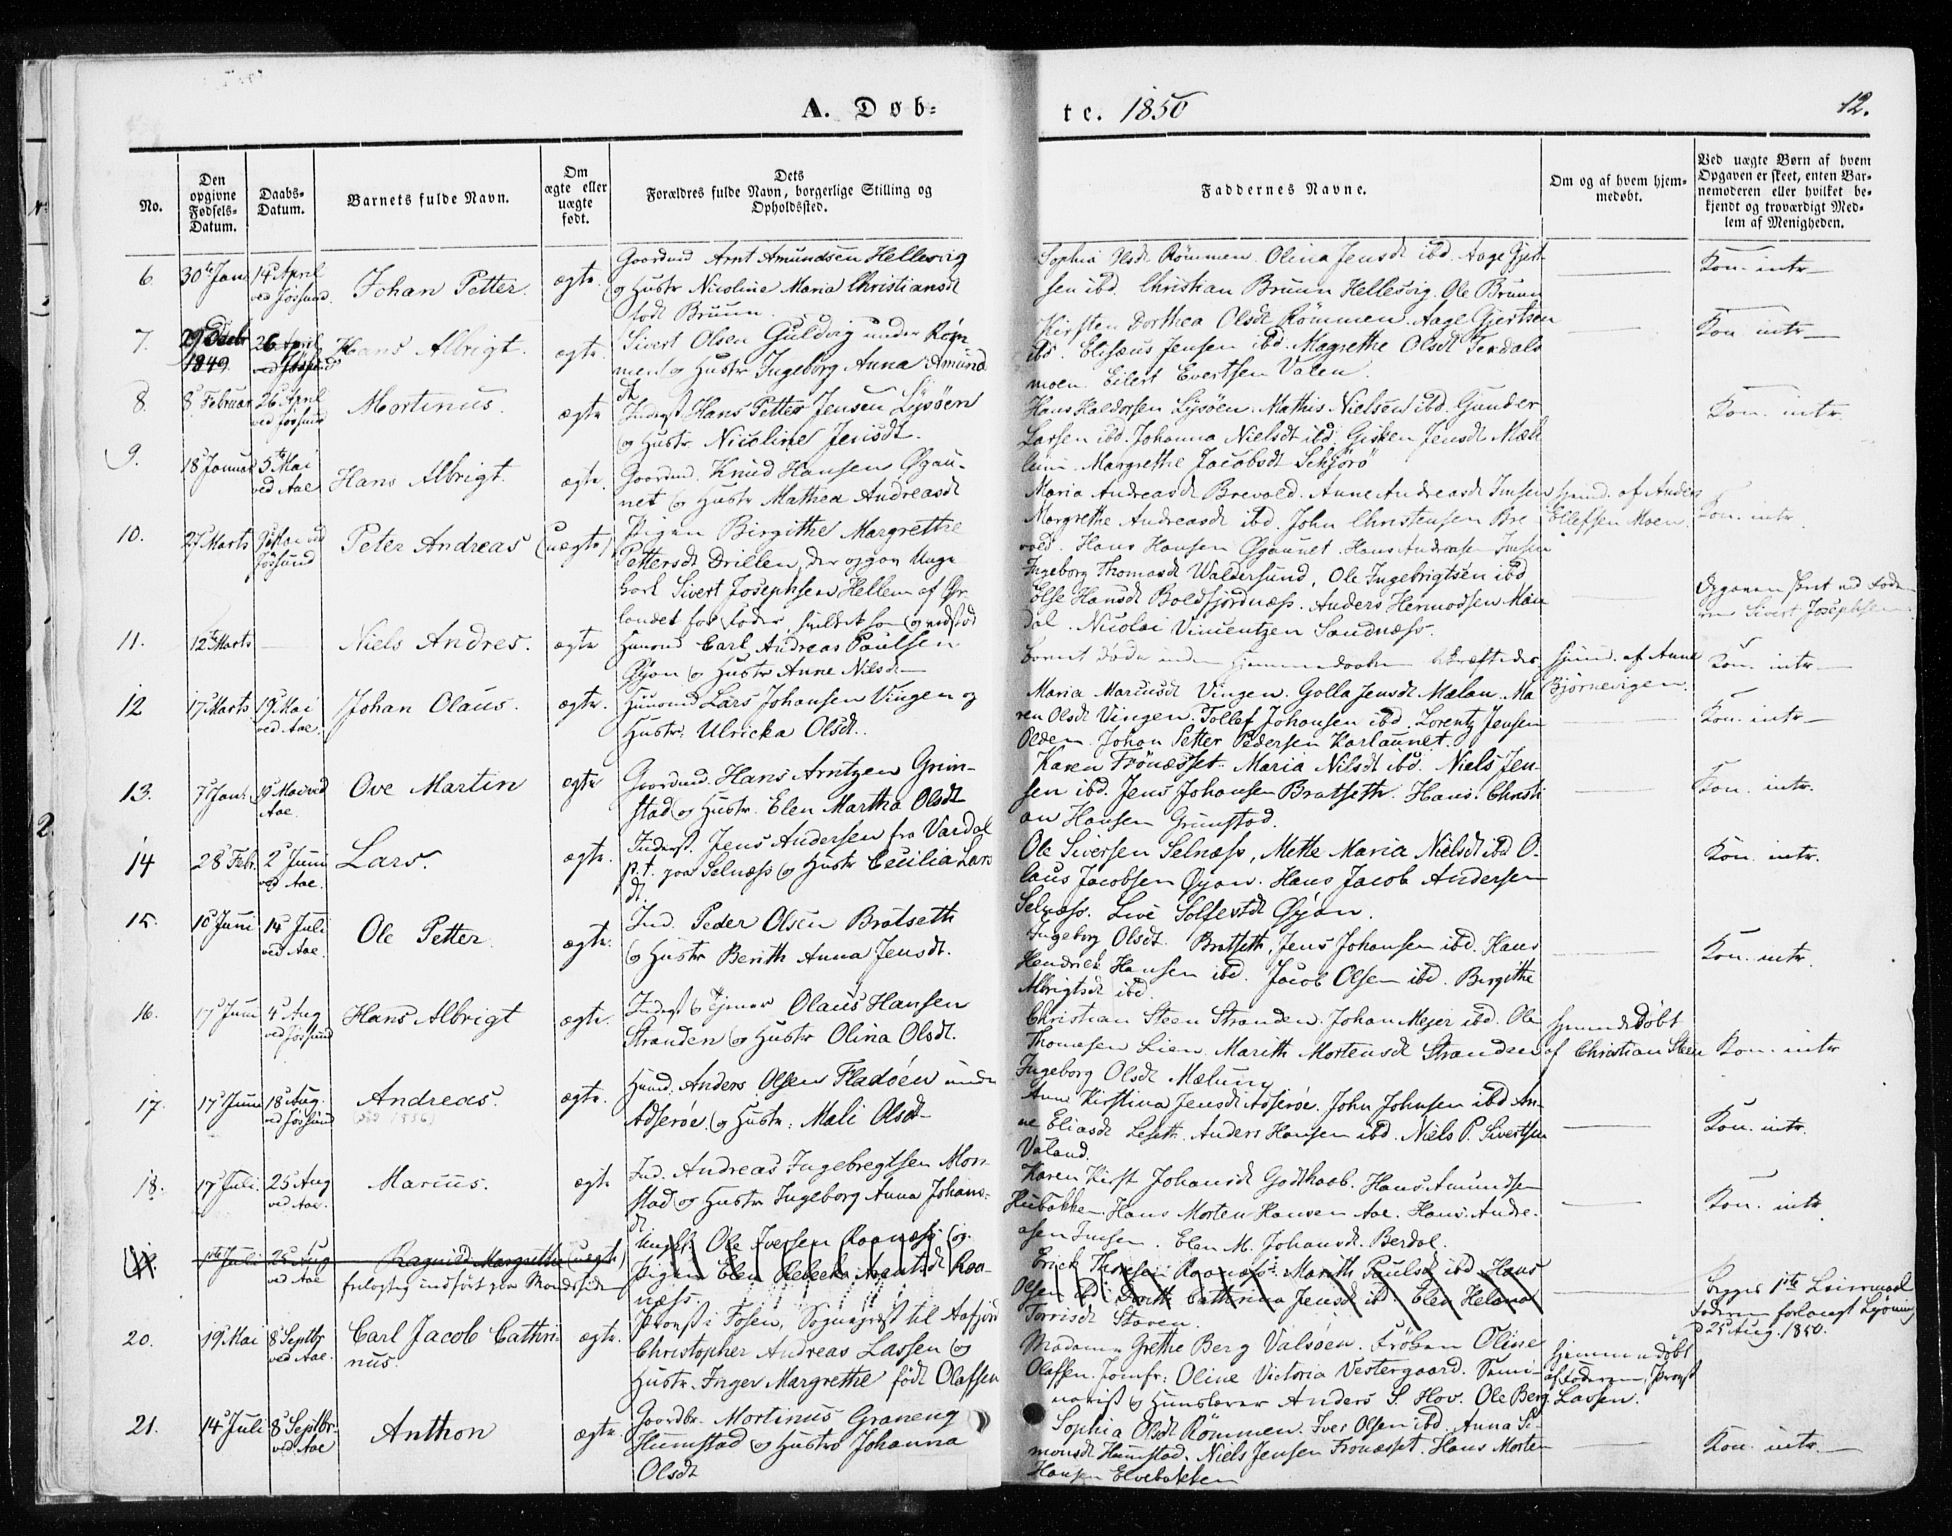 A. Døb-
te. 1850
12.
No.
Den opgivne Fødsels-Datum.
Daabs-Datum.
Barnets fulde Navn.
Om ægte eller uægte født.
Dets Forældres fulde Navn, borgerlige Stilling og Opholdssted.
Faddernes Navne.
Om og af hvem hjemmedøbt.
Ved uægte Børn af hvem Opgaven er skeet, enten Barnemoderen eller hvilket bekjendt og troværdigt Medlem af Menigheden.
6. 30te Jan 14 April ved Jøssund Johan Petter. ægte.
Gaardmd Arnt Amundsen Hellesvig
og Hustr Nicoline Maria Christiansdt
født Bruun.
Sophia Olsdt Rømmen. Olina Jensdt ibd. Aage Gjert-
sen ibd. Christian Bruun Hellesvig. Ole Bruun
Kon. intr
7. 1849 26 April Hans Albrigt. ægte.
Sivert Olsen Guldvig under Røm-
men og Hustr Ingeborg Anna Amund
dt
Kirsten Dorthea Olsdt Rømmen. Aage Gjertsen
ibd. Elisæus Jensen ibd. Magrethe Olsdt Teodals
moen. Eilert Evertsen Valen.
Kon intr
8. 8 Februar 26 April ved Jøssund Mortinus. ægte
Inderst Hans Petter Jensen Lysøen
og Hustr Nicoline Jensdt.
Hans Haldorsen Lysøen. Mathis Nielsen ibd. Gunder
Larsen ibd. Johanna Nielsdt ibd. Gisken Jensdt Mæl
lum. Margrethe Jacobsdt Selsjørø
Kon. intr.
9. 18 Januar 5te Mai ved Aae Hans Albrigt. ægte.
Gaardmd. Knud Hansen Øgau-
net og Hustr Mathea Andreasdt
Maria Andreasdt Brevold. Anne Andreasdt Imsen
Margrethe Andreasdt ibd. John Christensen Bre
vold. Hans Hansen Øgaunet. Hans Andreasen Imsen
Hjemd. af Anders
Ellefsen Moen.
Kon. intr.
10. 27 Marts 9 Mai ved Jøssund Peter Andreas (uægte)
Pigen Birgithe Margrethe
Pettersdt Drillen, der opgav Unge
karl Sivert Josephsen Hellem af Ør-
landet for Fader, hvilket han og vedstod
Ingeborg Thomasdt Waldersund, Ole Ingebrigtsen ibd
Else Hansdt Boldfjordnæss. Anders Hermodsen Mæn
dal. Nicolai Vincentzen Sandnæss.
Opgaven skeet ved Fade
ren Sivert Josephsen.
11. 12te Marts Niels Andres. ægte
Huusmd Carl Andreas Paulsen
Øyon og Hustr Anne Nilsdt
Barnet døde inden Hjemmedaaben bekræftedes
Hjemd. af Anne
Bjørnevigen.
Kon. intr
12 17 Marts 19 Mai ved Aae. Johan Olaus. ægte.
Huusmd Lars Johansen Vingen og
Hustr: Ulricka Olsdt.
Maria Marcusdt Vingen. Golla Jensdt Mælan. Ma
ren Olsdt Vingen. Tollef Johansen ibd. Lorentz Jensen
Olden. Johan Petter Pedersen Karlaunet.
Kon. intr
13. 7 Jan. 19 Mai ved Aae. Ove Martin ægte
Gaardmd. Hans Arntzen Grim-
stad og Hustr. Elen Martha Olsdt
Karen Frönæsset. Maria Nilsdt ibd. Niels Jen-
sen ibd. Jens Johansen Bratseth. Hans Christi
an Hansen Grimstad.
Kon. intr.
14 28 Febr. 2 Juni ved Aae. Lars. ægte.
Inderst. Jens Andersen fra Værdal
p.t. paa Selnæss og Hustr Cecilia Lars
dt.
Ole Siversen Selnæss, Mette Maria Nielsdt ibd O-
laus Jacobsen Øyan. Hans Jacob Andersen
Selnæss. Live Solfestdt Øyan.
Kon. intr.
15. 10 Juni 14 Juli ved Aae. Ole Petter. ægte.
Ind. Peder Olsen Bratseth
og Hustr Berith Anna Jensdt.
Ingeborg Olsdt. Bratseth, Jens Johansen ibd. Hans
Hendrick Hansen ibd. Jacob Olsen ibd. Birgithe
Albrigtsdt ibd.
Kon. intr
16. 17 Juni 4 Aug ved Jøssund Hans Albrigt ægte.
Inderst og Tjener Olaus Hansen
Stranden og Hustr Olina Olsdt.
Christian Steen Stranden. Johan Mejer ibd. Ole
Thomesen Lien. Marith Mortensdt Stranden
Ingeborg Olsdt Mælum
Hjemmedøbt
af Christian Steen
Kon. intr
17. 17 Juni 18 Aug. ved Jøssund Andreas. ægte.
Huusmd. Anders Olsen Fladøen under
Adserøe. og Hustr: Mali Olsdt
Anne Kirstina Jensdt Adserøe. John Johnsen ibd An-
ne Eliasdt Leseth. Anders Hansen ibd. Niels P. Sivertsen
Valand.
Kon. intr.
18. 17 Juli. 25 Aug ved Aae. Marius. ægte
Ind. Andreas Ingebregtsen Mon-
stad og Hustr Ingeborg Anna Johans-
dt
Karen Kirst. Johansdt Godthaab. Hans Amundsen
Hubakken. Hans Morten Hansen Aae. Hans Andre-
asen Imsen. Elen M. Johansdt. Berdal.
Kon. intr
19. Juli 25 Aug ved Aae Ragnild Margrethe (uægte)
feilagtig indført paa Mandssiden
Ungkl. Ole Iversen Raanæss og
Pigen Elen Rebecka Arentsdt Raa-
næss.
Erick Thomsen Raanæss. Marith Paulsdt ibd Hans
Olsen ibd. Cathrina Jensdt ibd. Elen Helena
Torrisdt Støven.
Begges 1ste Leiermaal
Faderen forlængst Lysning
25 Aug. 1850.
20. 19 Mai 8 Septbr ved Aae. Carl Jacob Cathri
nus. ægte.
Provst i Fosen, Sognepræst til Aafjord
Christopher Andreas Lassen og
Hustr. Inger Margrethe født Olaffsen
Madame Grethe Berg Valsöen. Frøken Oline
Olaffsen. Jomfr: Oline Victoria Vestergaard. Semi-
narist og Huuslærer Anders S. Hov. Ole Berg
Hjemmedøbt
af Faderen, Provst
Lassen.
21. 14 Juli 8 Septbr. ved Aae Anthon ægte.
Gaardbr. Mortinus Graneng
Humstad og Hustro Johanna
Olsdt
Sophia Olsdt Rømmen. Iver Olsen ibd. Anna Si-
monsdt Humstad. Niels Jensen Fronæsset. Hans Morten
Hansen Elvebakken
Kon. intr.